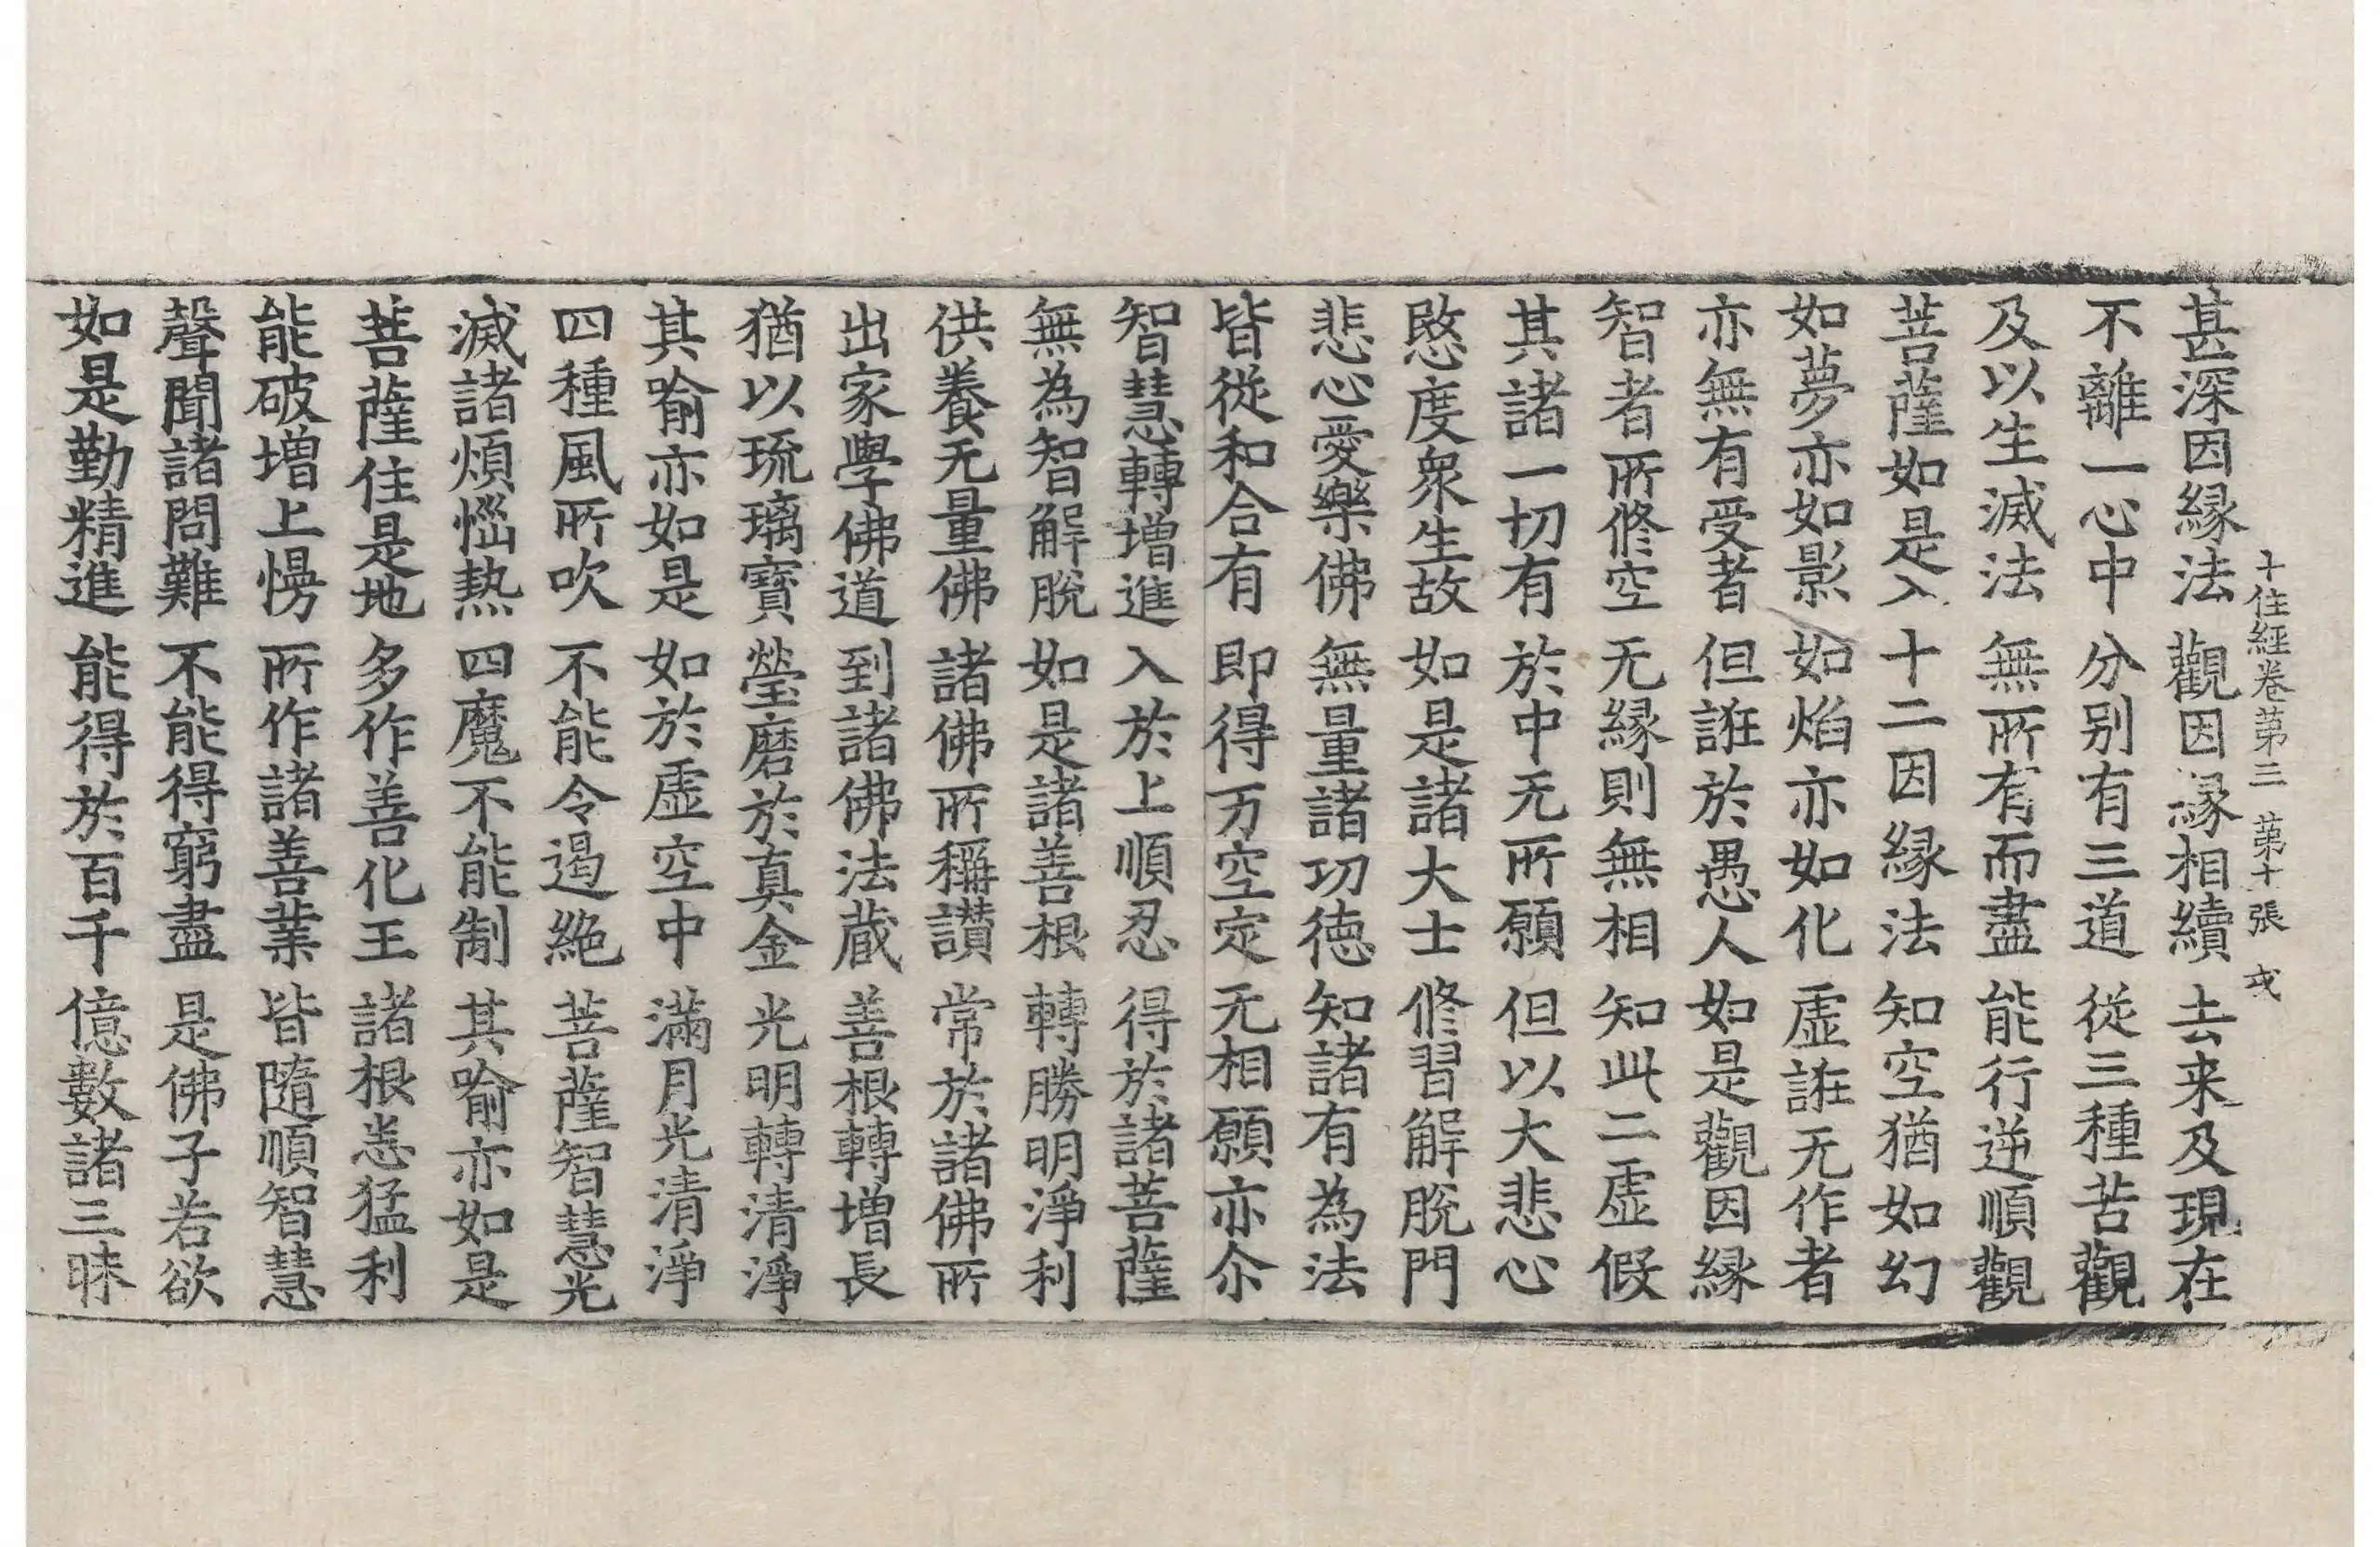 十住經卷第三 第十張 戎
甚深因縁法 觀因縁相續 去来及現在
不離一心中 分别有三道 從三種苦觀
及以生滅法 無所有而盡 能行逆順觀
菩薩如是入 十二因縁法 知空猶如幻
如夢亦如影 如焰亦如化 虛誑无作者
亦無有受者 但誑於愚人 如是觀因縁
智者所修空 无縁則無相 知此二虛假
其諸一切有 於中无所願 但以大悲心
愍度衆生故 如是諸大士 修習解脫門
悲心愛樂佛 無量諸功德 知諸有為法
皆從和合有 即得万空定 无相願亦尒
智慧轉增進 入於上順忍 得於諸菩薩
無為智解脫 如是諸善根 轉勝明淨利
供養无量佛 諸佛所稱讃 常於諸佛所
出家學佛道 到諸佛法蔵 善根轉增長
猶以琉璃寶 瑩磨於真金 光明轉清淨
其喻亦如是 如於虛空中 滿月光清淨
四種風所吹 不能令遏絶 菩薩智慧光
滅諸煩惱熱 四魔不能制 其喻亦如是
菩薩住是地 多作善化王 諸根悉猛利
能破增上慢 所作諸善業 皆隨順智慧
聲聞諸問難 不能得窮盡 是佛子若欲
如是勤精進 能得於百千 億數諸三昧